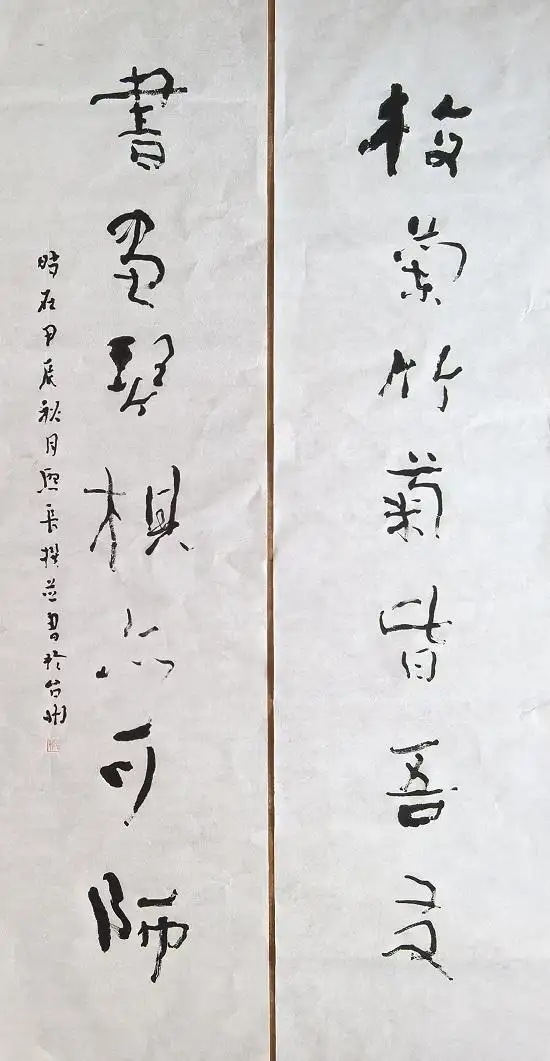 梅蘭竹菊皆吾友
書畫琴棋亦可師
時在甲辰秋月熙長撰並書於台州